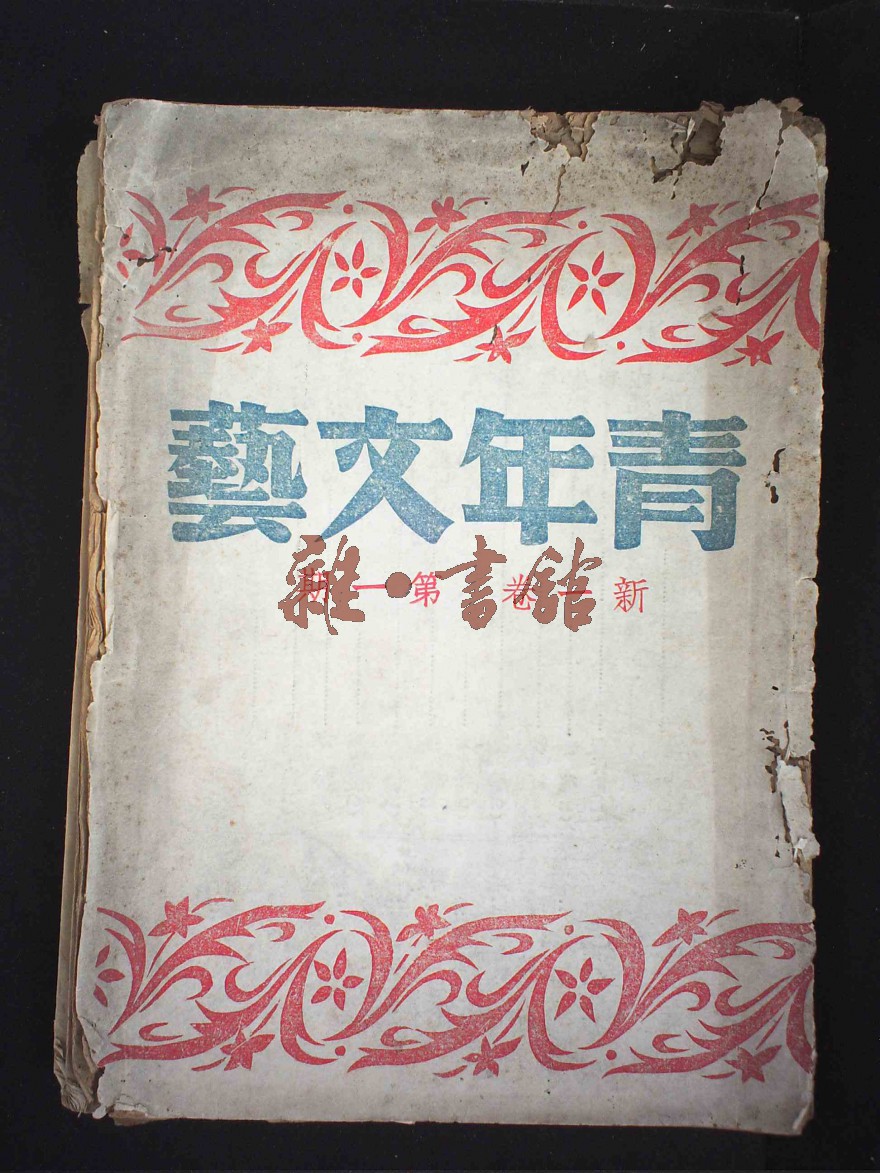 青年文藝
新一卷 第一期
雜·書館